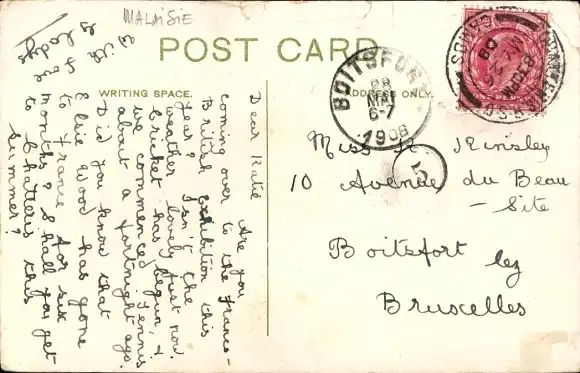 MALAISIE
POST CARD
WRITING SPACE.
ADDRESS ONLY.
Dear Katie
Are you
coming over to the Franco-
British exhibition this
year? Isn't the
weather lovely just now.
Cricket has begun, &
we commenced tennis
about a fortnight ago.
Did you know that
Elsie Wood has gone
to France for six
months? Shall you get
to Chatteris this
summer?
BOITSFORT
28
MAI
6-7
1908
5
Miss K. Kinsley
10 Avenue du Beau
- Site
Boitsfort lez
Bruxelles